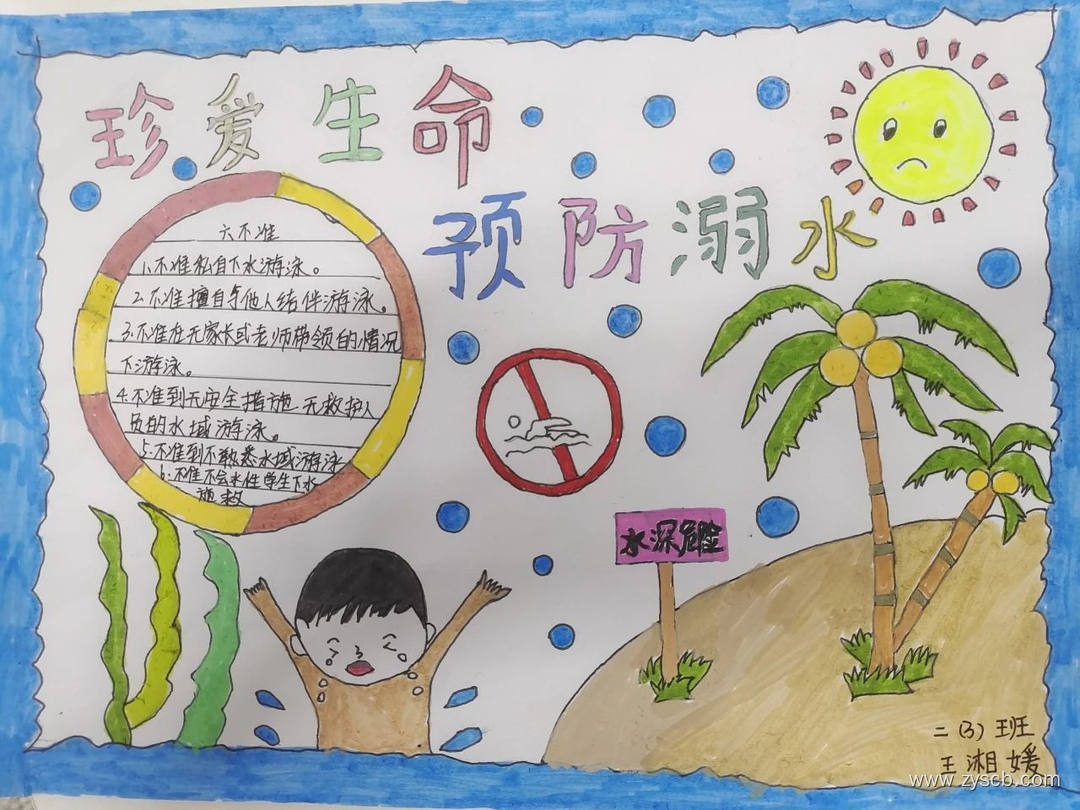 珍爱生命
预防溺水
六不准
1.不准私自下水游泳。
2.不准擅自与他人结伴游泳。
3.不准在无家长或老师带领的情况
下游泳。
4.不准到无安全措施无救护人
员的水域游泳。
5.不准到不熟悉水域游泳
6.不准不会水性学生下水
施救
水深危险
二(3)班
王湘媛
www.zyscb.com